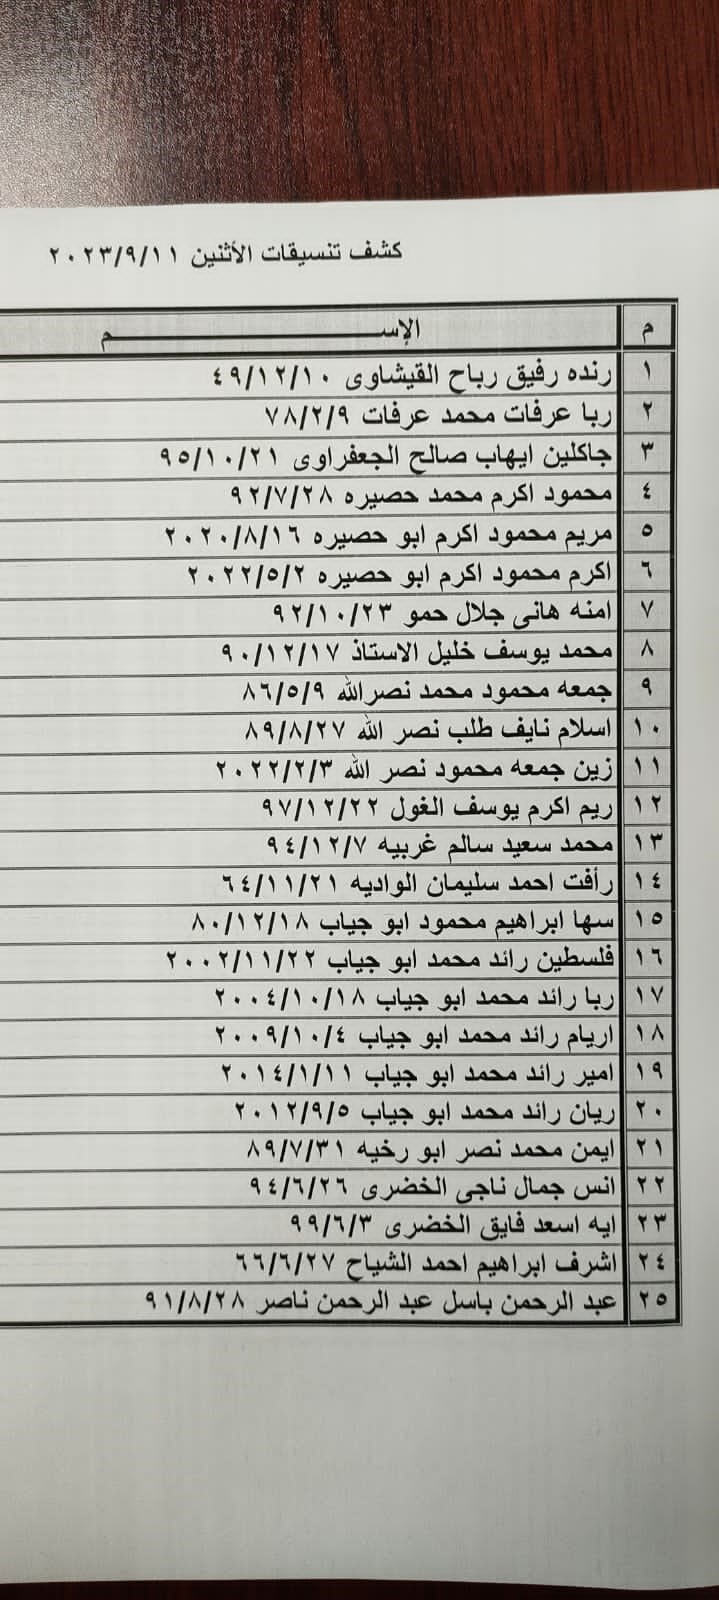 كشف تنسيقات الأثنين ٢٠٢٣/٩/١١
م الإســـــــــم
١ رنده رفيق رباح القيشاوى ٤٩/١٢/١٠
٢ ربا عرفات محمد عرفات ٧٨/٢/٩
٣ جاكلين ايهاب صالح الجعفراوى ٩٥/١٠/٢١
٤ محمود اكرم محمد حصيره ٩٢/٧/٢٨
٥ مريم محمود اكرم ابو حصيره ٢٠٢٠/٨/١٦
٦ اكرم محمود اكرم ابو حصيره ٢٠٢٢/٥/٢
٧ امنه هانى جلال حمو ٩٢/١٠/٢٣
٨ محمد يوسف خليل الاستاذ ٩٠/١٢/١٧
٩ جمعه محمود محمد نصرالله ٨٦/٥/٩
١٠ اسلام نايف طلب نصر الله ٨٩/٨/٢٧
١١ زين جمعه محمود نصر الله ٢٠٢٢/٢/٣
١٢ ريم اكرم يوسف الغول ٩٧/١٢/٢٢
١٣ محمد سعيد سالم غربيه ٩٤/١٢/٧
١٤ رأفت احمد سليمان الواديه ٦٤/١١/٢١
١٥ سها ابراهيم محمود ابو جياب ٨٠/١٢/١٨
١٦ فلسطين رائد محمد ابو جياب ٢٠٠٢/١١/٢٢
١٧ ربا رائد محمد ابو جياب ٢٠٠٤/١٠/١٨
١٨ اريام رائد محمد ابو جياب ٢٠٠٩/١٠/٤
١٩ امير رائد محمد ابو جياب ٢٠١٤/١/١١
٢٠ ريان رائد محمد ابو جياب ٢٠١٢/٩/٥
٢١ ايمن محمد نصر ابو رخيه ٨٩/٧/٣١
٢٢ انس جمال ناجى الخضرى ٩٤/٦/٢٦
٢٣ ايه اسعد فايق الخضرى ٩٩/٦/٣
٢٤ اشرف ابراهيم احمد الشياح ٦٦/٦/٢٧
٢٥ عبد الرحمن باسل عبد الرحمن ناصر ٩١/٨/٢٨